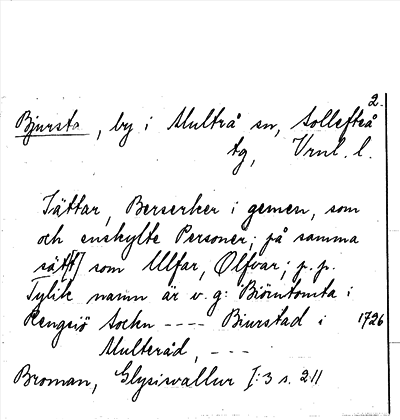 2.
Bjursta, by i Multrå sn, Sollefteå
tg, Vrnl. l.
Jättar, Berserker i gemen, som
och enskylte Personer; på samma
sätt som Ulfar, Ölfvar; p.p.
Tylik namn är v.g: Biörntomta i
Rengsiö Sockn ---- Biurstad i 1726
Multeråd, - - -
Broman, Glysisvallur I:3 s. 211